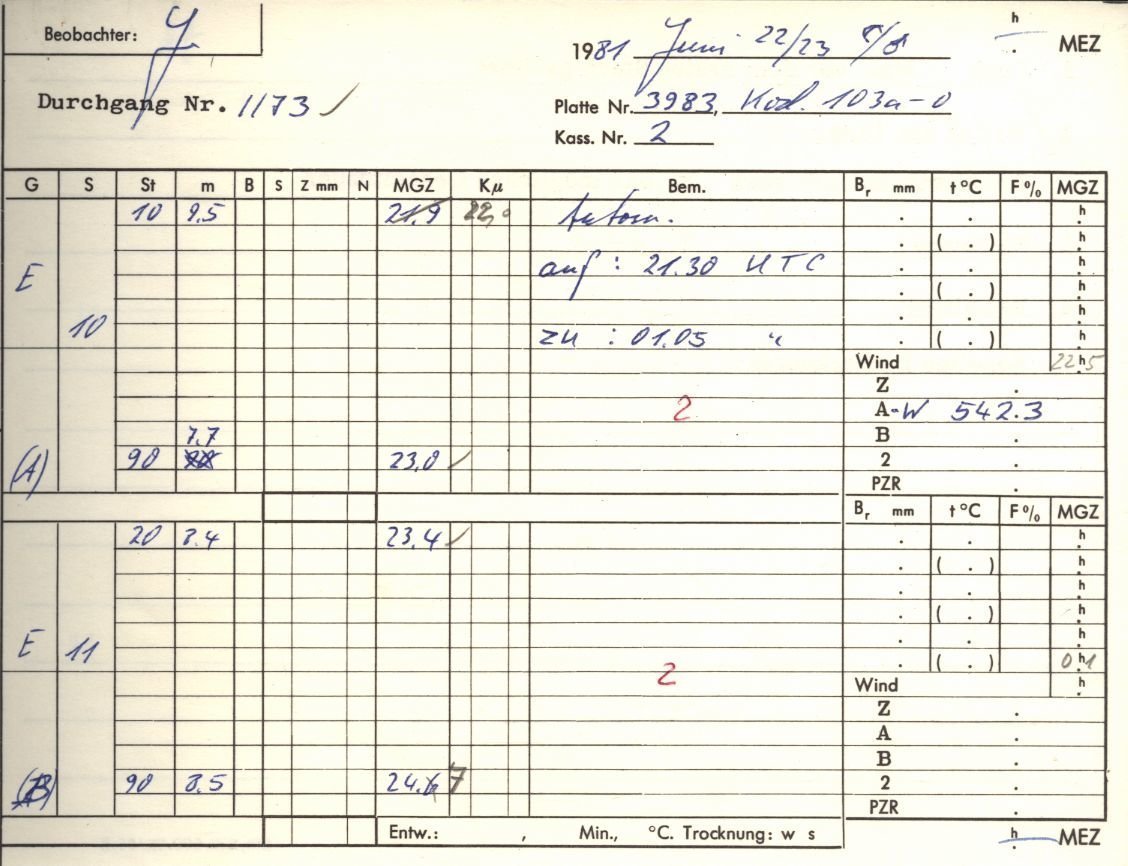 Beobachter: Y
1981 Juni 22/23
h . MEZ
Durchgang Nr. 1173
Platte Nr. 3983, Kod. 103a-0
Kass. Nr. 2
G S St m B S Z mm N MGZ Kμ Bem. Br mm t °C F% MGZ
10 9.5 21,9 22, Autom. . . h
. ( . ) h
E auf : 21.30 UTC . . h
. ( . ) h
10 . . h
zu : 01.05 " . ( . ) h
Wind 22h5
Z .
2 A-W 542.3
7.7 B .
(A) 90 23,0 2 .
PZR .
Br mm t °C F% MGZ
20 8.4 23,4 . . h
. ( . ) h
. . h
. ( . ) h
. . h
E 11 . ( . ) 0h1
2 Wind h
Z .
A .
B .
(B) 90 8.5 24.6 7 2 .
PZR .
Entw.: , Min., °C. Trocknung: w s h . MEZ